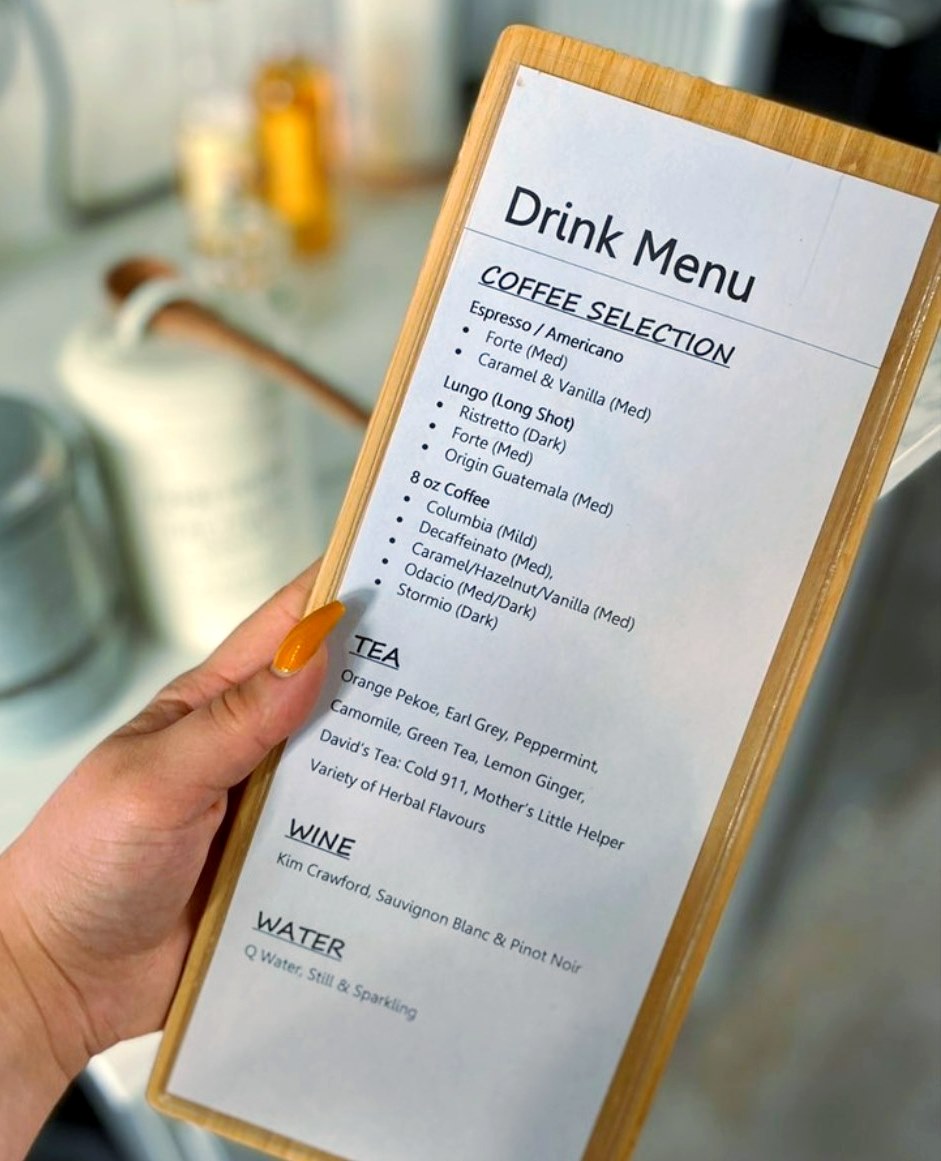 Drink Menu
COFFEE SELECTION
Espresso / Americano
• Forte (Med)
• Caramel & Vanilla (Med)
Lungo (Long Shot)
• Ristretto (Dark)
• Forte (Med)
• Origin Guatemala (Med)
8 oz Coffee
• Columbia (Mild)
• Decaffeinato (Med),
• Caramel/Hazelnut/Vanilla (Med)
• Odacio (Med/Dark)
• Stormio (Dark)
TEA
Orange Pekoe, Earl Grey, Peppermint,
Camomile, Green Tea, Lemon Ginger,
David's Tea: Cold 911, Mother's Little Helper
Variety of Herbal Flavours
WINE
Kim Crawford, Sauvignon Blanc & Pinot Noir
WATER
Q Water, Still & Sparkling